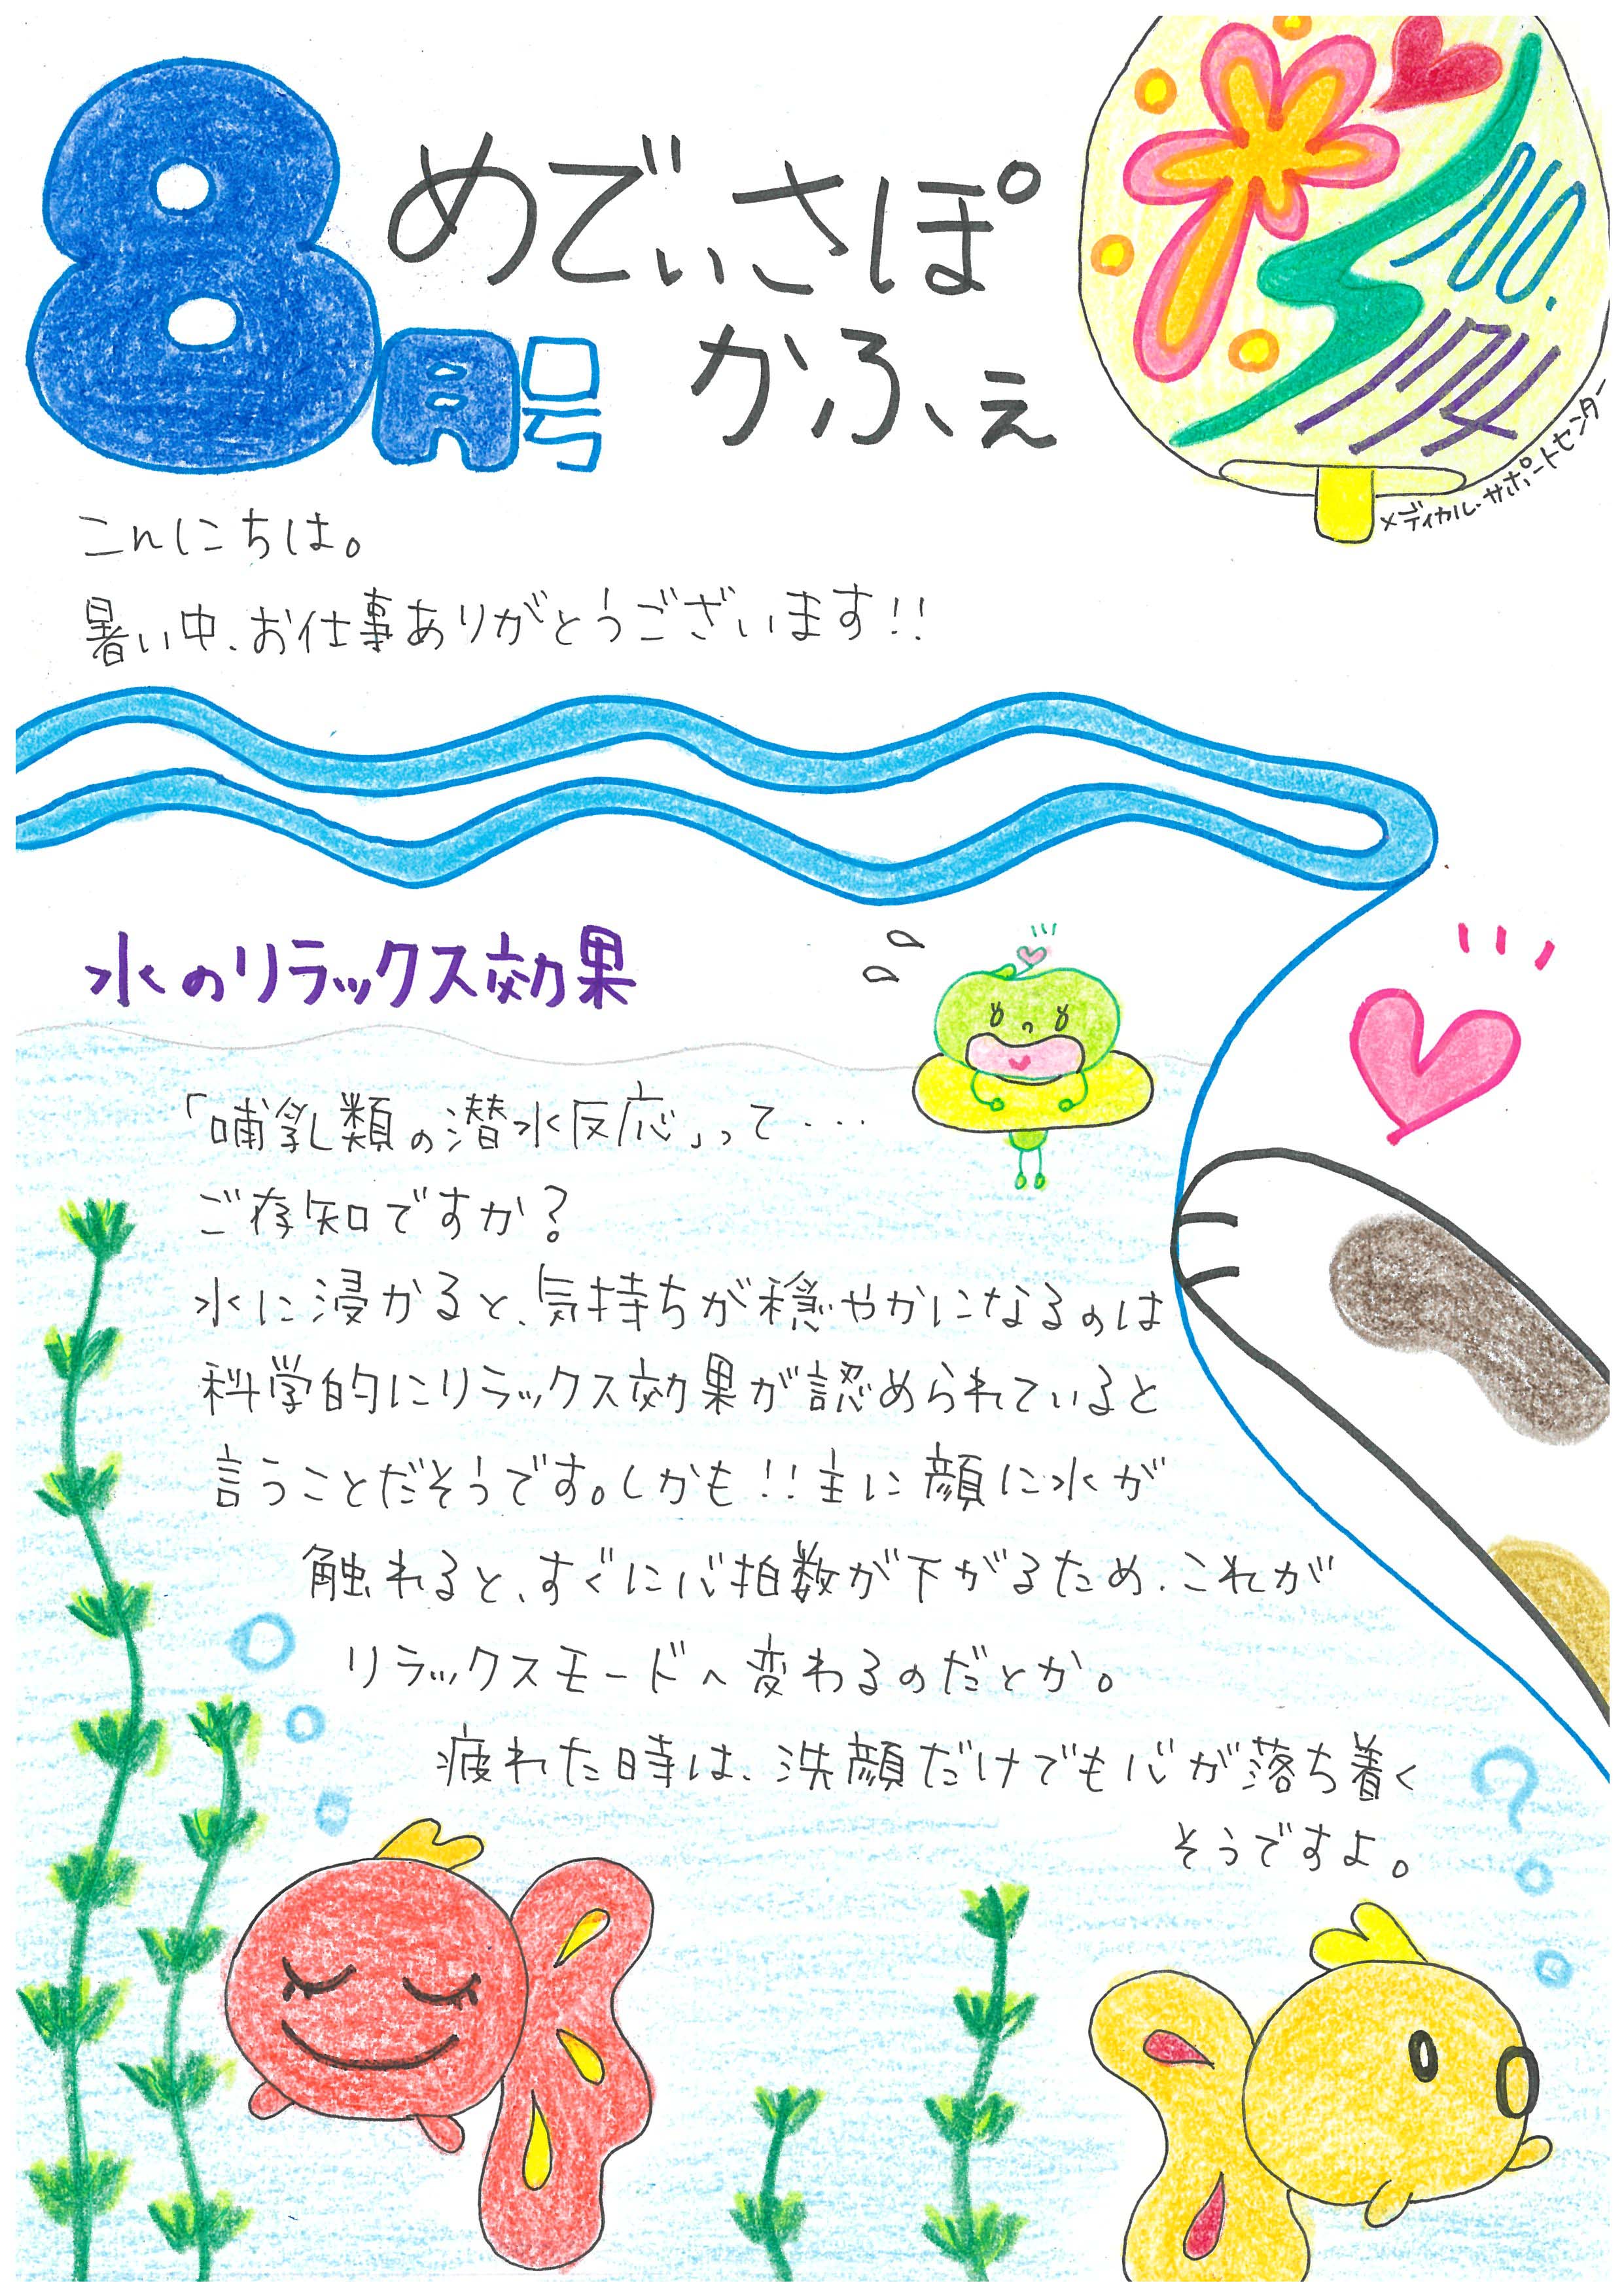 8月号
めでぃさぽ
かふぇ
No.
172
メディカル・サポートセンター
こんにちは。
暑い中、お仕事ありがとうございます!!
水のリラックス効果
「哺乳類の潜水反応」って・・・
ご存知ですか?
水に浸かると、気持ちが穏やかになるのは
科学的にリラックス効果が認められていると
言うことだそうです。しかも!!主に顔に水が
触れると、すぐに心拍数が下がるため、これが
リラックスモードへ変わるのだとか。
疲れた時は、洗顔だけでも心が落ち着く
そうですよ。
?